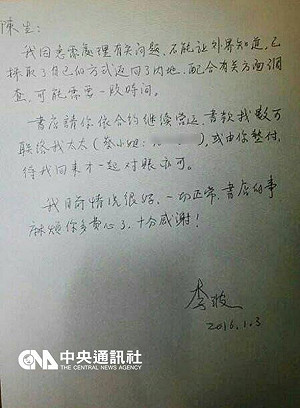 陳生:
我因急需處理有关问题,不能让外界知道,已
採取了自己的方式返回了内地,配合有关方面调
查,可能需要一段時间。
書店請你依合約继续营运,書款找數可
联络我太太(蔡小姐: ),或由你墊付,
待我回來才一起对賬亦可。
我目前情况很好,一切正常,書店的事
麻烦你多費心了,十分感謝!
李波
2016.1.3
CNA 中央通訊社
THE CENTRAL NEWS AGENCY